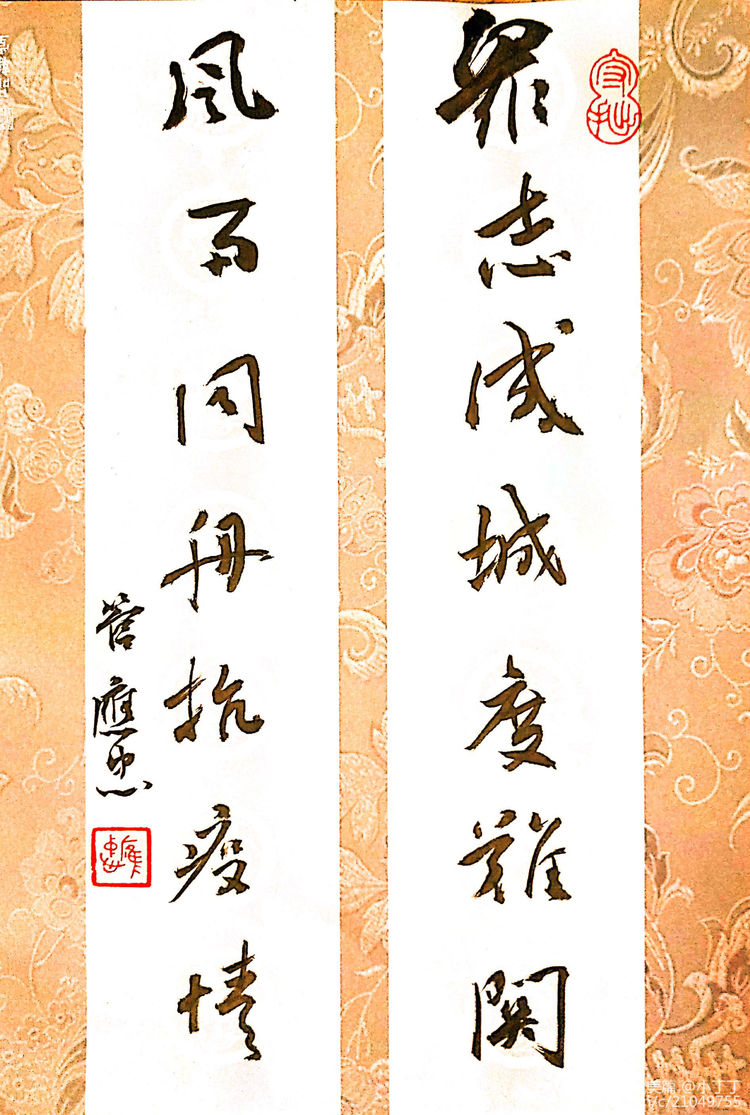 眾志成城度難関
風雨同舟抗疫情
管應忠
守拙
美篇 @小丁丁
yc/21049755